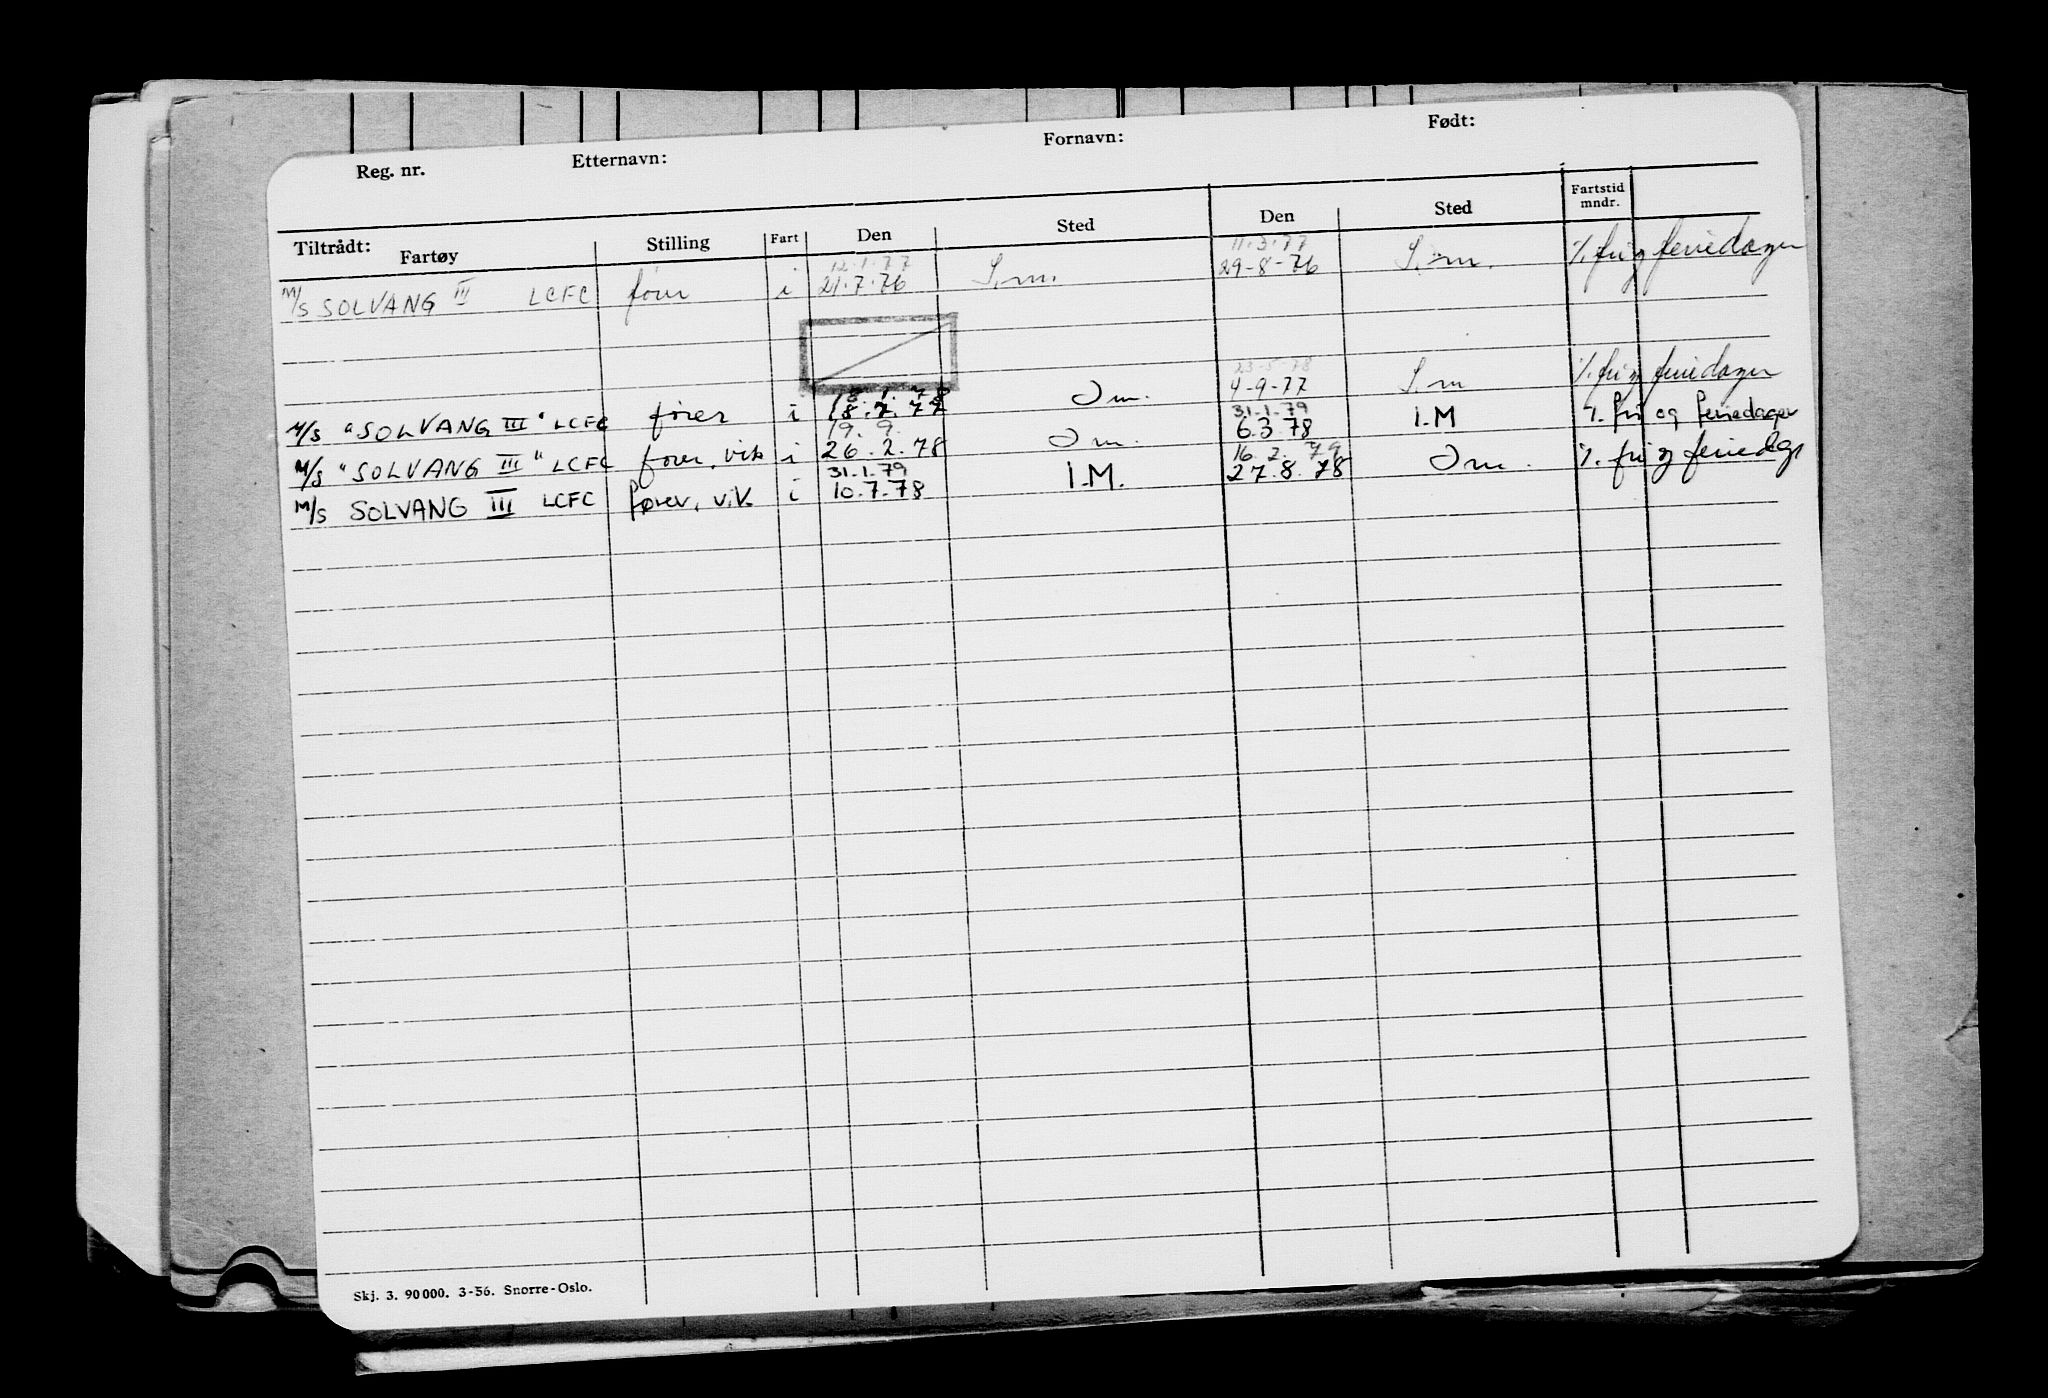 Reg. nr. Etternavn: Fornavn: Født:
Tiltrådt: Fartøy Stilling Fart Den Sted Den Sted Fartstid mndr.
12.1.77 11.3.77
M/S SOLVANG III LCFC fører i 21.7.76 I.m. 29-8-76 I.m. % fri og feriedager
18.1.78 23-5-78
M/S "SOLVANG III" LCFC fører i 18.7.77 I m. 4-9-77 I.m % fri og feriedager
19.9. 31.1.79
M/S "SOLVANG III" LCFC fører, vik i 26.2.78 I m. 6.3.78 I.M % fri og feriedager
31.1.79 16.2.79
M/S SOLVANG III LCFC fører, vik i 10.7.78 I.M. 27.8.78 I m. % fri og feriedgr
Skj. 3. 90 000. 3-56. Snorre-Oslo.